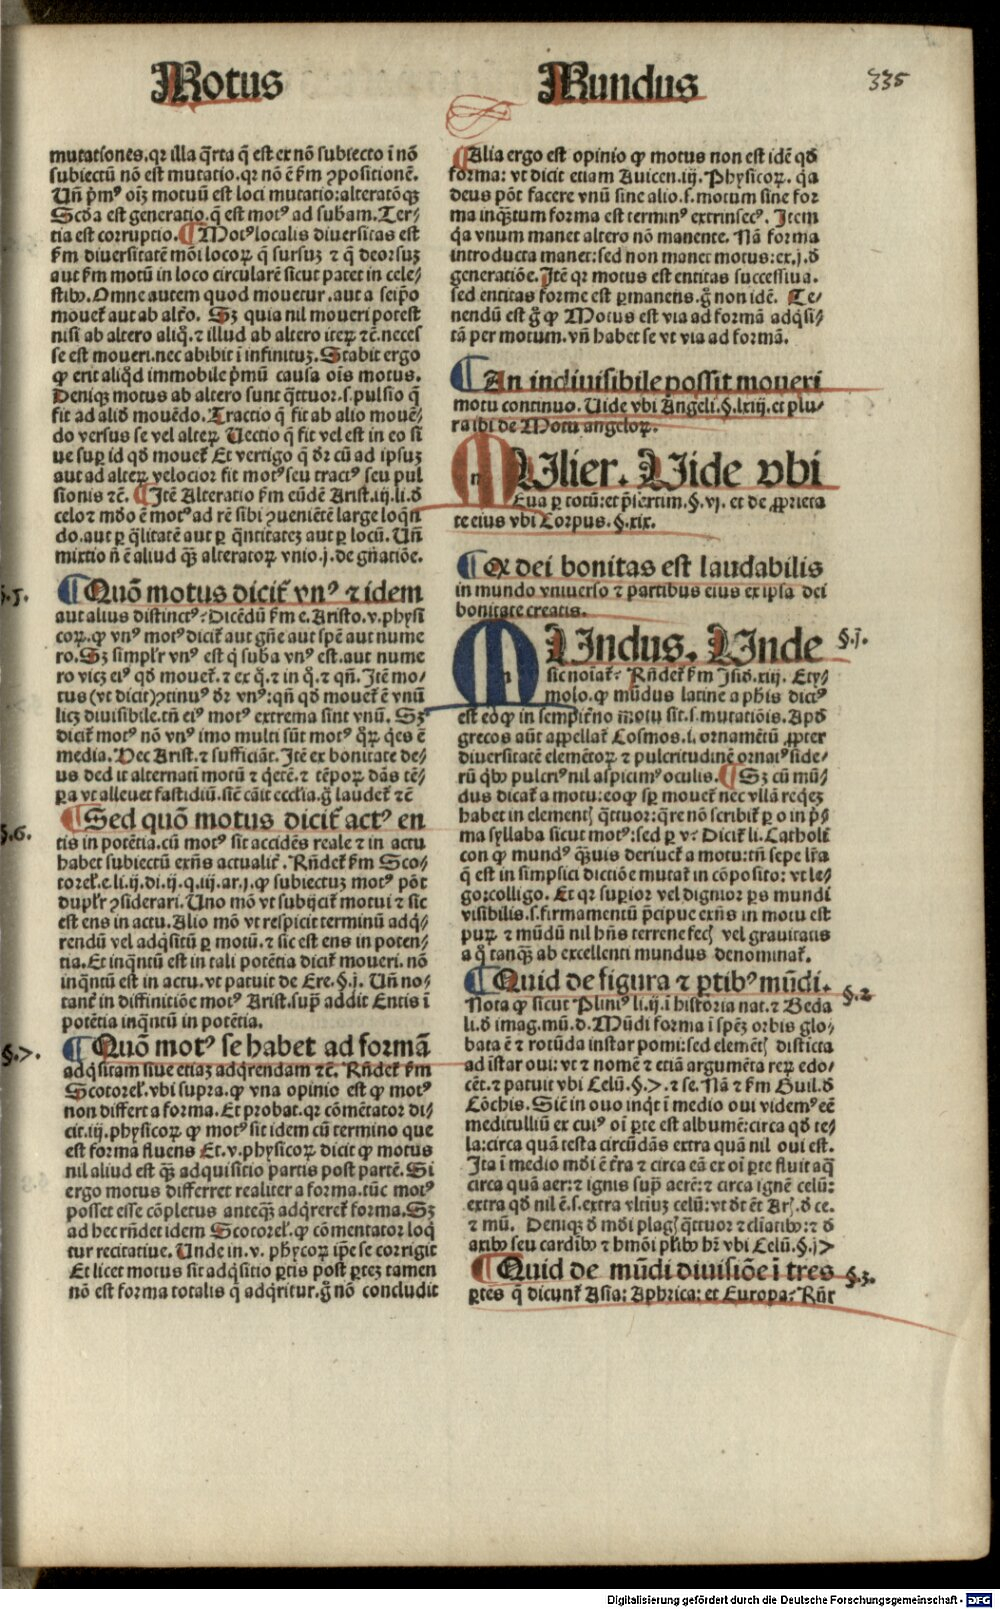 Motus
Mundus
335
mutationes.qr illa q̄rta q̄ est ex nō subiecto ī nō
subiectū nō est mutatio.qr nō ē ẜm ꝯpositionē.
Un̄ pͥmꝰ oīꝫ motuū est loci mutatio:alteratōqꝫ
Scd̄a est generatio.q̄ est motꝰ ad subam.Ter⸗
tia est corruptio.¶Motꝰ localis diuersitas est
ẜm diuersitatē mōi locoꝝ qͥ sursuꝫ ⁊ qͥ deorsuꝫ
aut ẜm motū in loco circularē sicut patet in cele⸗
stibꝰ.Omne autem quod mouetur.aut a seip̄o
mouet᷑ aut ab alt̄o. Sꝫ quia nil moueri potest
nisi ab altero aliqͦ.⁊ illud ab altero iteꝝ ⁊c̄.neces
se est moueri.nec abibit ī infinituꝫ.Stabit ergo
ꝙ erit aliqͥd immobile pͥmū causa oīs motus.
Denique motus ab altero sunt qͣttuor.s.pulsio qͥ
fit ad aliō mouēdo.Tractio qͥ fit ab alio mouē⸗
do versus se vel alteꝝ Uectio qͥ fit vel est in eo si
ue suꝑ id qd̄ mouet᷑ Et vertigo qͥ dr̄ cū ad ipsuꝫ
aut ad alteꝝ velocior fit motꝰ seu tractꝰ seu pul
sionis ⁊c̄.¶Itē Alteratio ẜm eūdē Arist.iij.li.d̄
celo ⁊ mōo ē motꝰ ad rē sibi ꝯueniētē large loqn̄
do.aut ꝑ qͣlitatē aut ꝑ qͣntitateꝫ aut ꝑ locū.Un̄
mixtio n̄ ē aliud qͣꝫ alteratoꝝ vnio.j.de gn̄atiōe.
§.5.
¶Quō motus dicit᷑ vnꝰ ⁊ idem
aut alius distinctꝰ? Dicēdū ẜm e.Aristo.v.physi
coꝝ.ꝙ vnꝰ motꝰ dicit᷑ aut gn̄e aut spē aut nume
ro.Sꝫ simplr̄ vnꝰ est qͥ suba vnꝰ est.aut nume
ro viceꝫ eiꝰ qd̄ mouet᷑.⁊ ex qͦ.⁊ in qͦ.⁊ qn̄.Itē mo⸗
tus (vt dicit)ꝯtinuꝰ dr̄ vnꝰ:qn̄ qd̄ mouet᷑ ē vnū
licꝫ diuisibile.tn̄ eiꝰ motꝰ extrema sint vnū. Sꝫ
dicit᷑ motꝰ nō vnꝰ imo multi sūt motꝰ qͣꝝ qͥes ē
media.Hec Arist.⁊ sufficiāt.Itē ex bonitate de⸗
us ded it alternati motū ⁊ qͥetē.⁊ tēpoꝝ dās tē⸗
ꝑa vt alleuet fastidiū.sic̄ cāit eccl̄ia.g̊ laudet᷑ ⁊c̄
§.6.
¶Sed quō motus dicit᷑ actꝰ en
tis in potētia.cū motꝰ sit accidēs reale ⁊ in actu
habet subiectū exn̄s actualit᷑.Rn̄det᷑ ẜm Sco⸗
torel᷑.e.li.ij.di.ij.q.iij.ar.j.ꝙ subiectuꝫ motꝰ pōt
duplr̄ ꝯsiderari.Uno mō vt subijcit᷑ motui ⁊ sic
est ens in actu.Alio mō vt respicit terminū adqͥ⸗
rendū vel adqͥsitū ꝑ motū.⁊ sic est ens in poten⸗
tia.Et inqͣntū est in tali potētia dicit᷑ moueri.nō
inqͣntū est in actu.vt patuit de Ere.§.j. Un̄ no⸗
tant᷑ in diffinitiōe motꝰ Arist.suꝑ addit Entis ī
potētia inqͣntū in potētia.
§.7.
¶Quō motꝰ se habet ad formā
adqͥsitam siue etiaꝫ adqͥrendam ⁊c̄. Rn̄det᷑ ẜm
Scotorel᷑.vbi supra.ꝙ vna opinio est ꝙ motꝰ
non differt a forma.Et probat.qr cōmētator di⸗
cit.iij.physicoꝝ ꝙ motꝰ sit idem cū termino que
est forma fluens Et.v.physicoꝝ dicit ꝙ motus
nil aliud est qͣꝫ adquisitio partis post partē.Si
ergo motus differret realiter a forma.tūc motꝰ
posset esse cōpletus anteqͣꝫ adqͥreret᷑ forma.Sꝫ
ad hec rn̄det idem Scotorel᷑.ꝙ cōmentator loqͥ
tur recitatiue.Unde in.v. phycoꝝ ip̄e se corrigit
Et licet motus sit adqͥsitio ꝑtis post ꝑteꝫ tamen
nō est forma totalis qͥ adqͥritur.g̊ nō concludit
¶Alia ergo est opinio ꝙ motus non est idē qd̄
forma: vt dicit etiam Auicen.iij.Physicoꝝ.qͥa
deus pōt facere vnū sine alio.s.motum sine for
ma inqͣtum forma est terminꝰ extrinsecꝰ. Item
qͥa vnum manet altero nō manente. Nā forma
introducta manet:sed non manet motus:ex.j.d̄
generatiōe.Itē qr motus est entitas successiua.
sed entitas forme est ꝑmanens.g̊ non idē. Te⸗
nendū est g̊ ꝙ Motus est via ad formā adqͥsi⸗
tā per motum.vn̄ habet se vt via ad formā.
¶An indiuisibile possit moueri
motu continuo. Uide vbi Angeli.§.lxiij.et plu⸗
ra ibi de Motu angeloꝝ.
MUlier. Uide vbi
Eua ꝑ totū:et p̄sertim.§.vj. et de ꝓprieta
te eius vbi Corpus.§.xix.
¶Ex dei bonitas est laudabilis
in mundo vniuerso ⁊ partibus eius ex ipsa dei
bonitate creatis.
§.j.
MUndus. Unde
sic noīat᷑? Rn̄det᷑ ẜm Isid̄.xiij. Ety⸗
molo.ꝙ mūdus latine a ph̄is dictꝰ
est eoꝙ in sempit̄no motu sit.s.mutatiōis.Apd̄
grecos aūt appellat᷑ Cosmos.i.ornamētū ꝓpter
diuersitatē elemētoꝝ ⁊ pulcritudinē ornatꝰ side⸗
rū qͥbꝰ pulcriꝰ nil aspicimꝰ oculis.¶Sꝫ cū mū⸗
dus dicat᷑ a motu:eoꝙ sꝑ mouet᷑ nec vllā reqͥeꝫ
habet in elementꝭ qͣttuor:qͣre nō scribit᷑ ꝑ o in pͥ⸗
ma syllaba sicut motꝰ:sed ꝑ v? Dicit᷑ li. Catholi⸗
con ꝙ mundꝰ qͣꝫuis deriuet᷑ a motu:tn̄ sepe lr̄a
q̄ est in simplici dictiōe mutat᷑ in cōposito: vt le⸗
go:colligo. Et qr suꝑior vel dignior ꝑs mundi
visibilis.s.firmamentū p̄cipue exn̄s in motu est
puꝝ ⁊ mūdū nil hn̄s terrene fecꝭ vel grauitatis
a qͦ tanqͣꝫ ab excellenti mundus denominat᷑.
§.2
¶Quid de figura ⁊ ꝑtibꝰ mūdi.
Nota ꝙ sicut Pliniꝰ li.ij.ī historia nat.⁊ Beda
li.d̄ imag.mū.d. Mūdi forma ī speꝫ orbis glo⸗
bata ē ⁊ rotūda instar pomi:sed elemētꝭ disticta
ad īstar oui: vt ⁊ nomē ⁊ etiā argumēta reꝝ edo⸗
cēt.⁊ patuit vbi Celū.§.7.⁊ se. Nā ⁊ ẜm Guil.d̄
Cōchis. Sic̄ in ouo inqͥt ī medio oui videmꝰ eē
meditulliū ex cuiꝰ oī ꝑte est albumē:circa qd̄ te⸗
la:circa quā testa circūdās extra quā nil oui est.
Ita ī medio mōi ē t̄ra ⁊ circa eā ex oī ꝑte fluit aqͣ
circa quā aer:⁊ ignis suꝑ aerē:⁊ circa ignē celū:
extra qd̄ nil ē.s.extra vltimū celū:vt dr̄ ēt Ar.d̄ ce.
⁊ mū. Deniqꝫ d̄ mōi plagꝭ qͣttuor ⁊ cliatibꝰ:⁊ d̄
axibꝰ seu cardībꝰ ⁊ hmōi pl̄ibꝰ hr̄ vbi Celū.§.j7
§.3.
¶Quid de mūdi diuisiōe ī tres
ꝑtes q̄ dicunt᷑ Asia: Aphrica: et Europa? Rn̄r
Digitalisierung gefördert durch die Deutsche Forschungsgemeinschaft - DFG